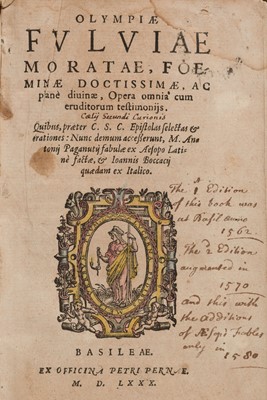 OLYMPIÆ
FVLVIAE
MORATAE, FOE-
MINÆ DOCTISSIMÆ, AC
planè diuinæ, Opera omnia cum
eruditorum testimonijs.
Cœlij Secundi Curionis
Quibus, præter C. S. C. Epistolas selectas &
orationes: Nunc demum accesserunt, M. An-
tonij Paganutij fabulæ ex Æsopo Lati-
nè factæ, & Ioannis Boccacij
quædam ex Italico.
The 1 Edition
of this book was
at Basil anno
1562.
The 2 Edition
augmented in
1570
and this with
the additions
of Æsops Fables
only in
1580
BASILEAE.
EX OFFICINA PETRI PERNÆ.
M. D. LXXX.